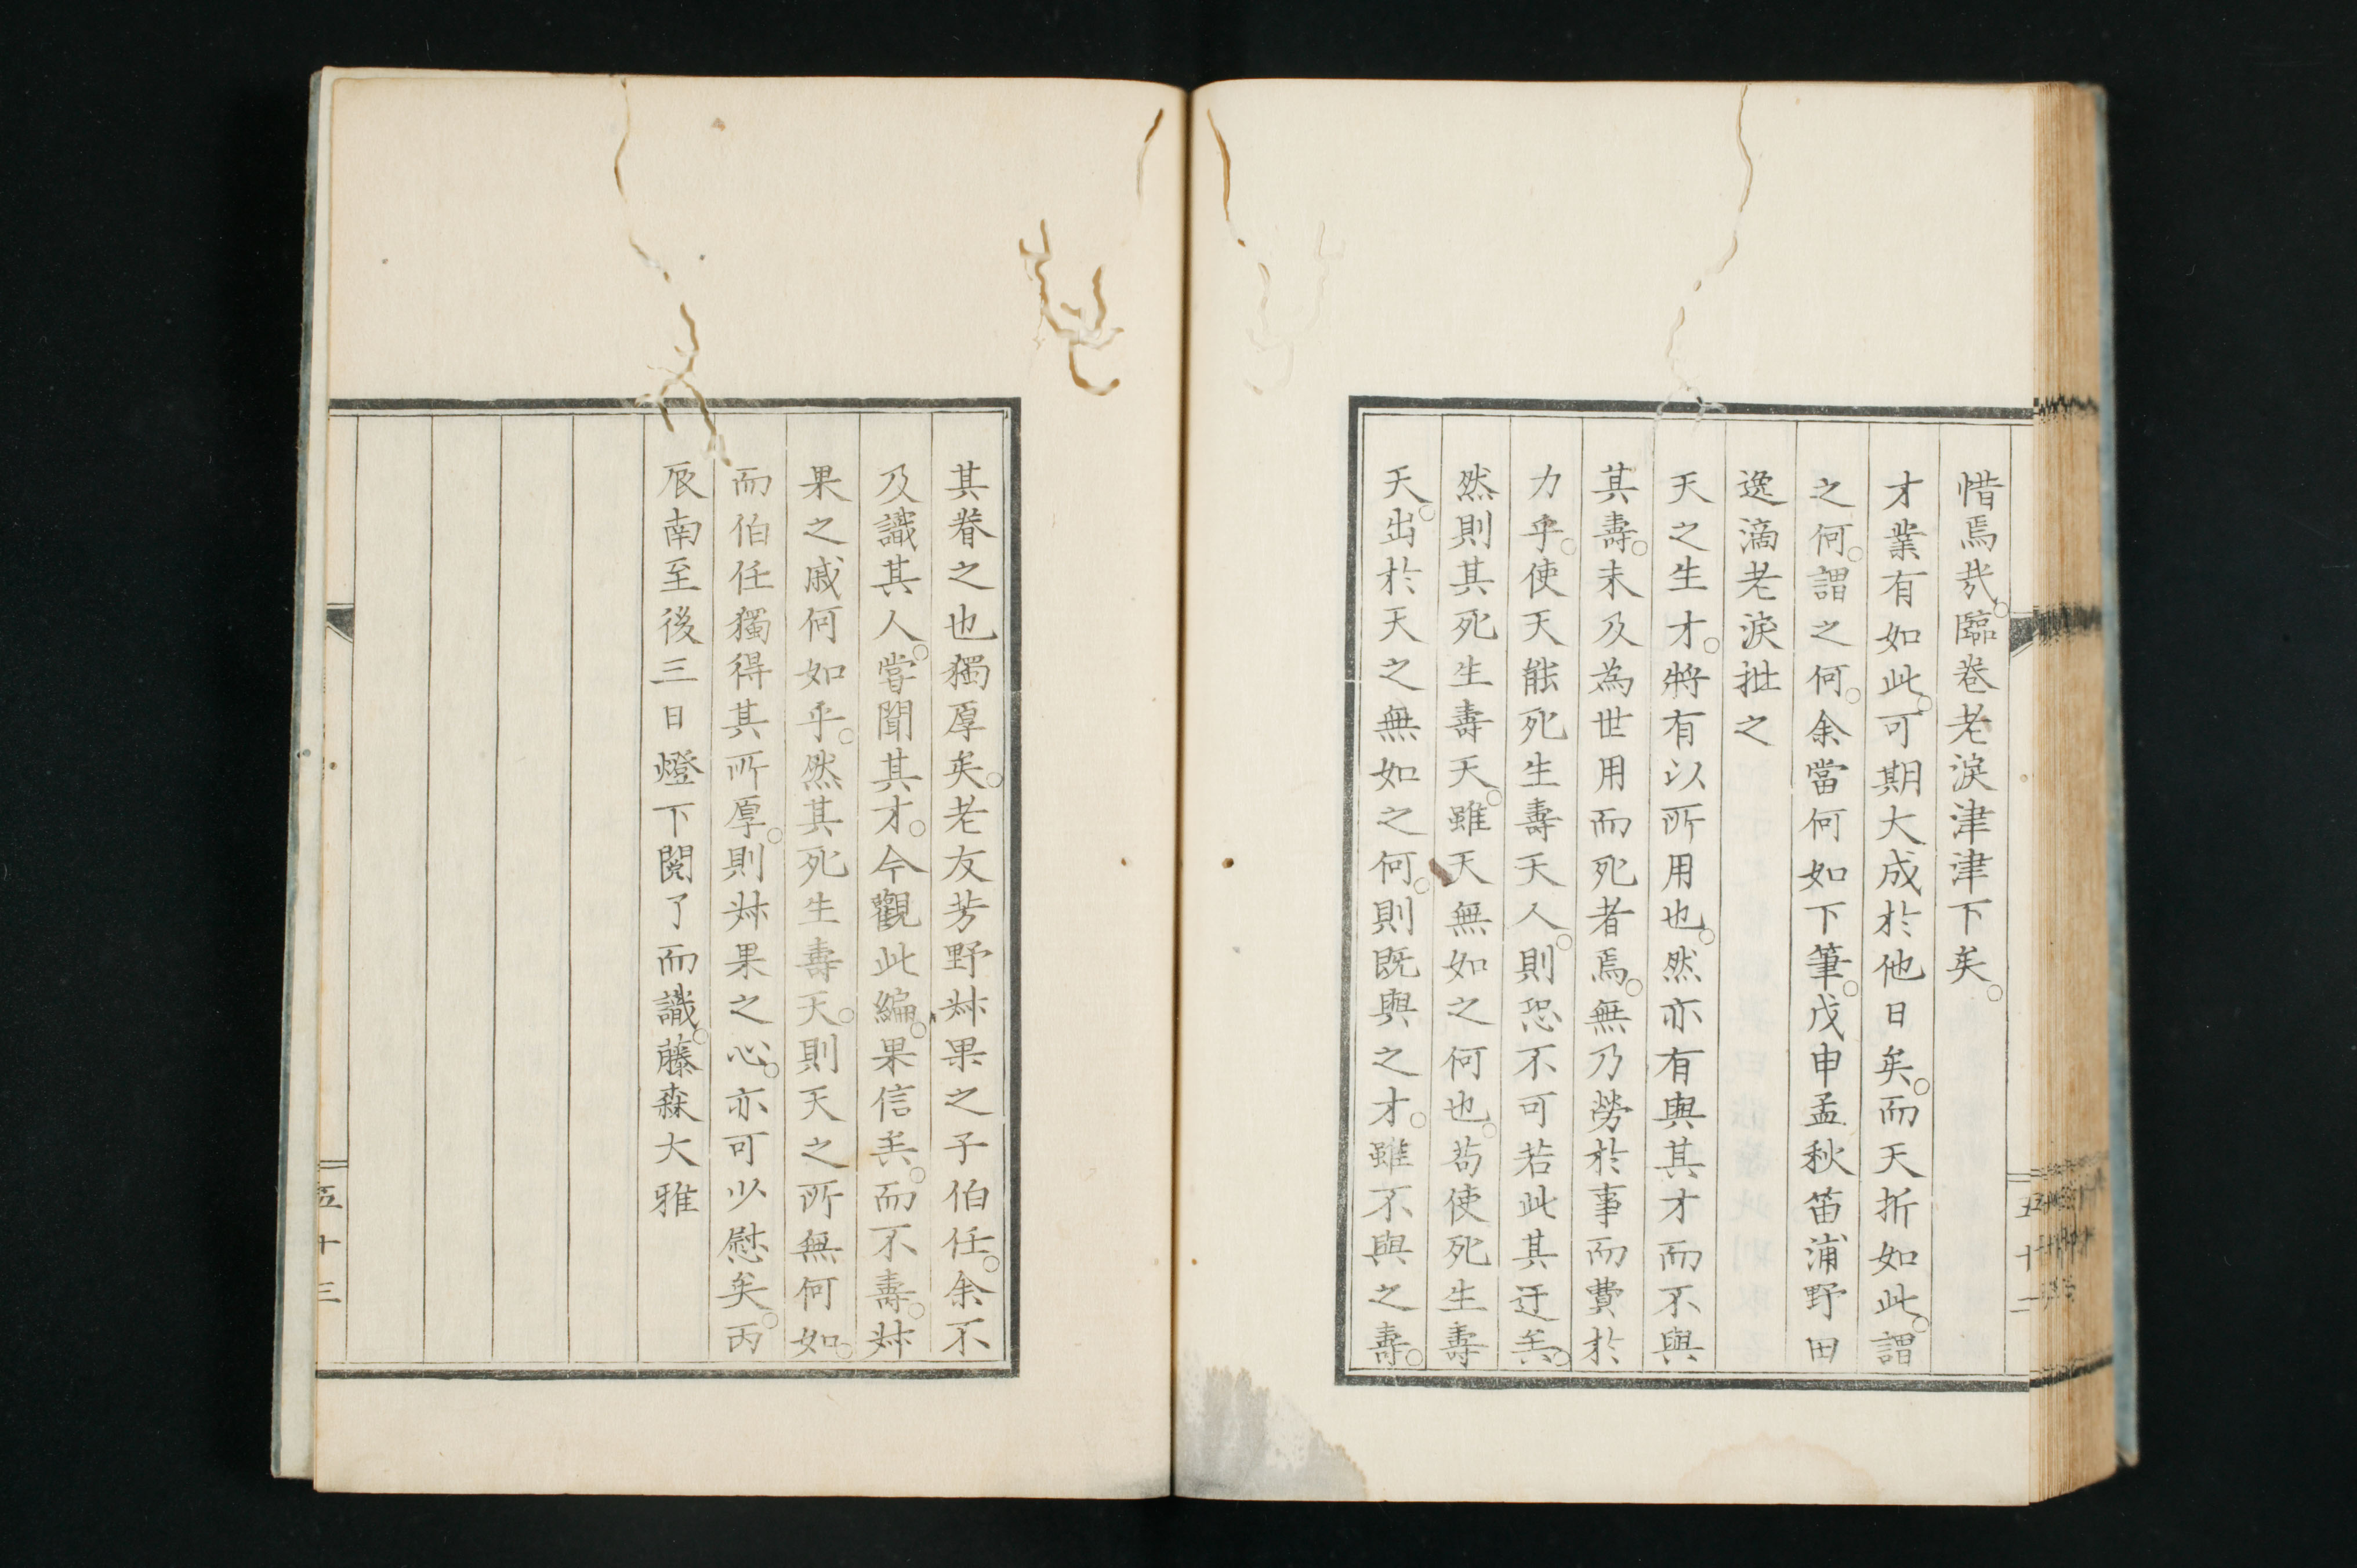 惜焉哉。臨卷老淚津津下矣。
才業有如此。可期大成於他日矣。而夭折如此。謂
之何。謂之何。余當何如下筆。戊申孟秋笛浦野田
逸滴老淚批之
天之生才。將有以所用也。然亦有與其才而不與
其壽。未及為世用而死者焉。無乃勞於事而費於
力乎。使天能死生壽夭人。則恐不可若此其迂矣。
然則其死生壽夭。雖天無如之何也。苟使死生壽
夭。出於天之無如之何。則既與之才。雖不與之壽。
五十二
其眷之也獨厚矣。老友芳野叔果之子伯任。余不
及識其人。嘗聞其才。今觀此編。果信矣。而不壽。叔
果之戚何如乎。然其死生壽夭。則天之所無何如。
而伯任獨得其所厚。則叔果之心。亦可少慰矣。丙
辰南至後三日燈下閱了而識。藤森大雅
五十三